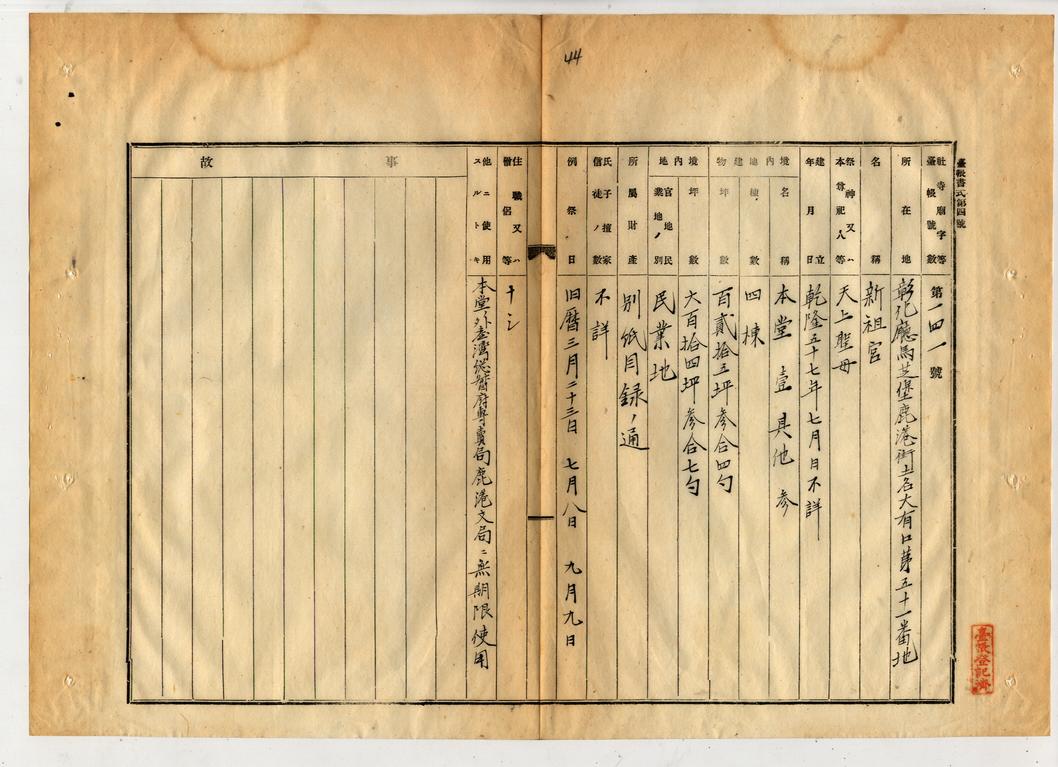 44
臺帳書式第四號
社寺廟宇等臺帳號數 第一四一號
所在地 彰化廳馬芝堡鹿港街土名大有口第五十一番地
名稱 新祖宮
祭神又ハ本尊祀人等 天上聖母
建立年月日 乾隆五十七年七月日不詳
境內建物
名稱 本堂壹 其他参
棟數 四棟
坪數 百貳拾五坪参合四勺
境內地
坪數 六百拾四坪参合七勺
官地民業地ノ別 民業地
所屬財產 別紙目録ノ通
氏子檀家信徒ノ數 不詳
例祭日 旧暦三月二十三日 七月八日 九月九日
住職又ハ僧侶等 ナシ
他ニ使用スルトキ 本堂外臺灣総督府專賣局鹿港支局ニ無期限使用
事故
臺帳登記濟